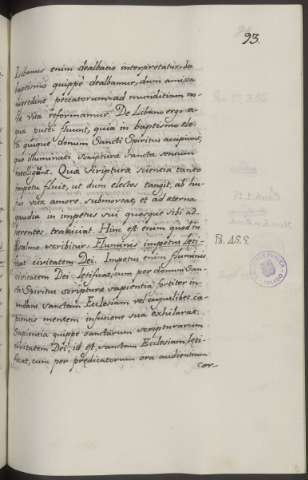 93.
Libanus enim dealbatio interpretatur, in
baptismo quippe dealbamur, dum amissa
peccatorum ad munditiam no-
vae vitae reformamur. De Libano ergo a-
qua putei fluunt, quia in baptismo ele-
cti quique donum Sancti Spiritus accipiunt,
quo illuminati scripturae sanctae sensum
intelligant. Quae scriptura sicuti a tanto
impetu fluit, ut dum electos tangit, ab hu-
ius vitae amore submoveat, et ad aeterna
gaudia in impetus sui quosque sibi ad-
herentes trahiciat. Hinc est enim quod in
Psalmo scribitur. Fluminis impetus leti-
ficat civitatem Dei. Impetus enim fluminis Ps. 45. 5
civitatem Dei letificat, cum per donum San-
cti Spiritus scripturae sapientia fortiter in-
undans sanctam Ecclesiam vel cuiuslibet sa-
pientis mentem infusione sua exhilarat.
Sapientia quippe sanctarum scripturarum
civitatem Dei, id est, sanctam Ecclesiam leti-
ficat, cum per praedicatorum ora audientium
cor-